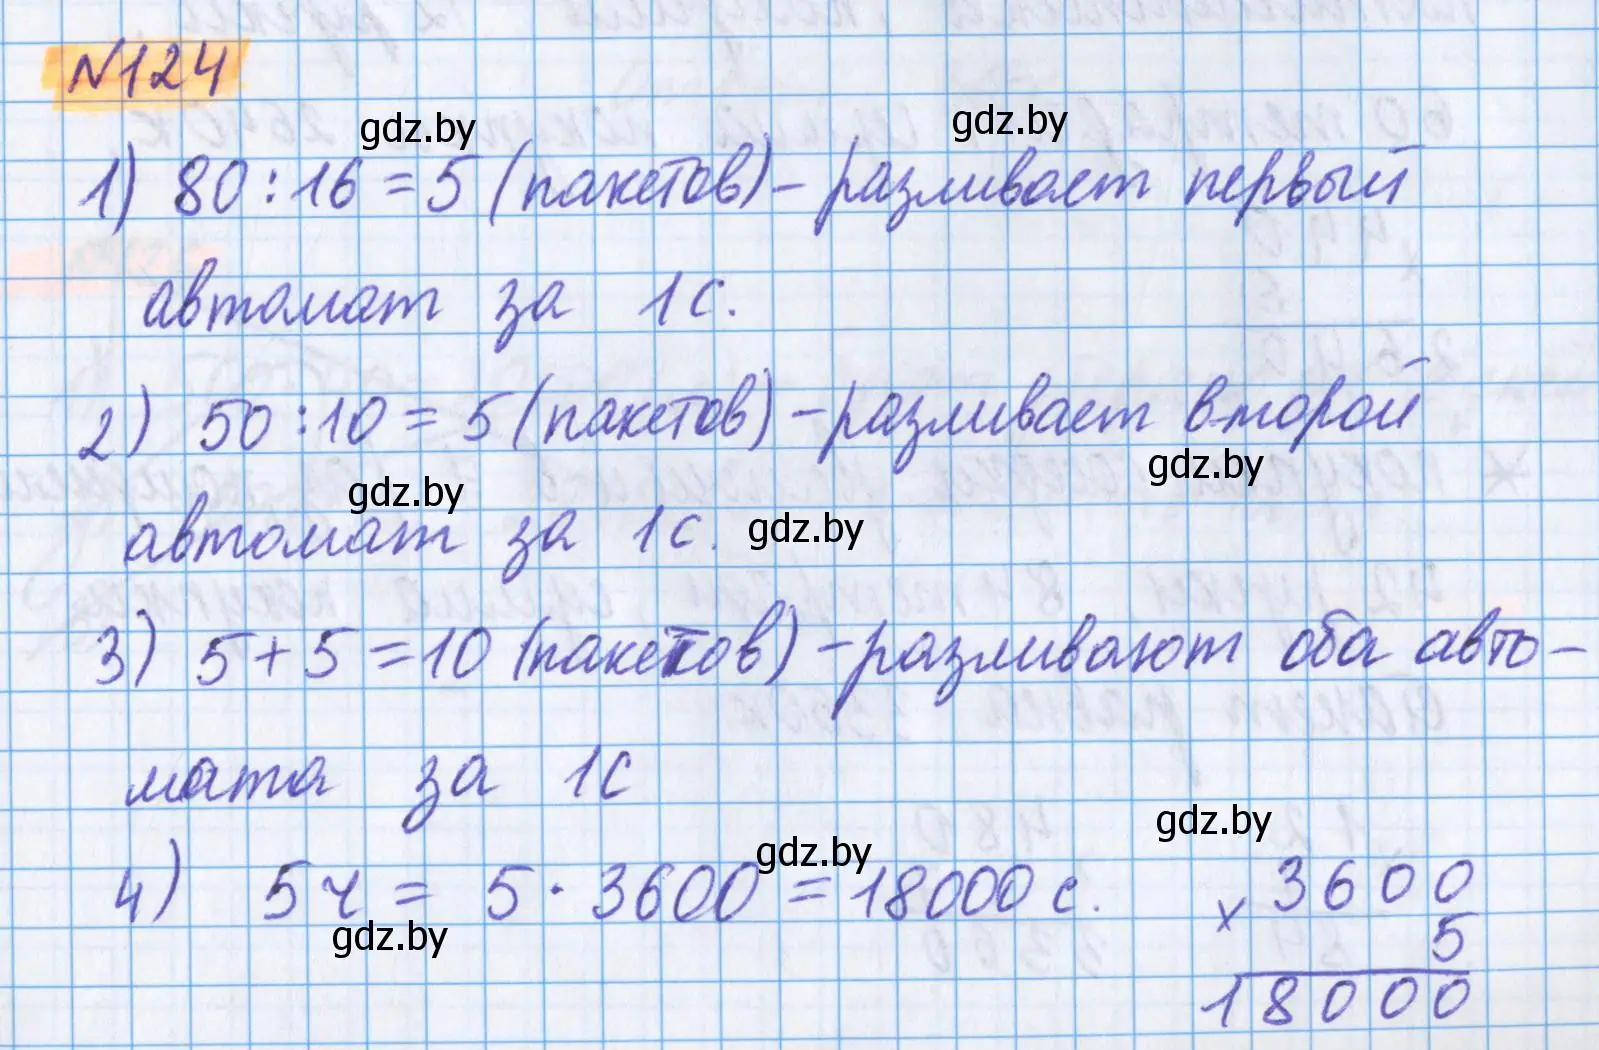 №124
gdz.by gdz.by
1) 80:16=5 (пакетов) – разливает первый
автомат за 1с.
2) 50:10=5 (пакетов) – разливает второй
gdz.by gdz.by
автомат за 1с. gdz.by
3) 5+5=10 (пакетов) – разливают оба авто-
мата за 1с
gdz.by gdz.by
4) 5ч = 5·3600=18000 с.
gdz.by
3600
× 5
18000